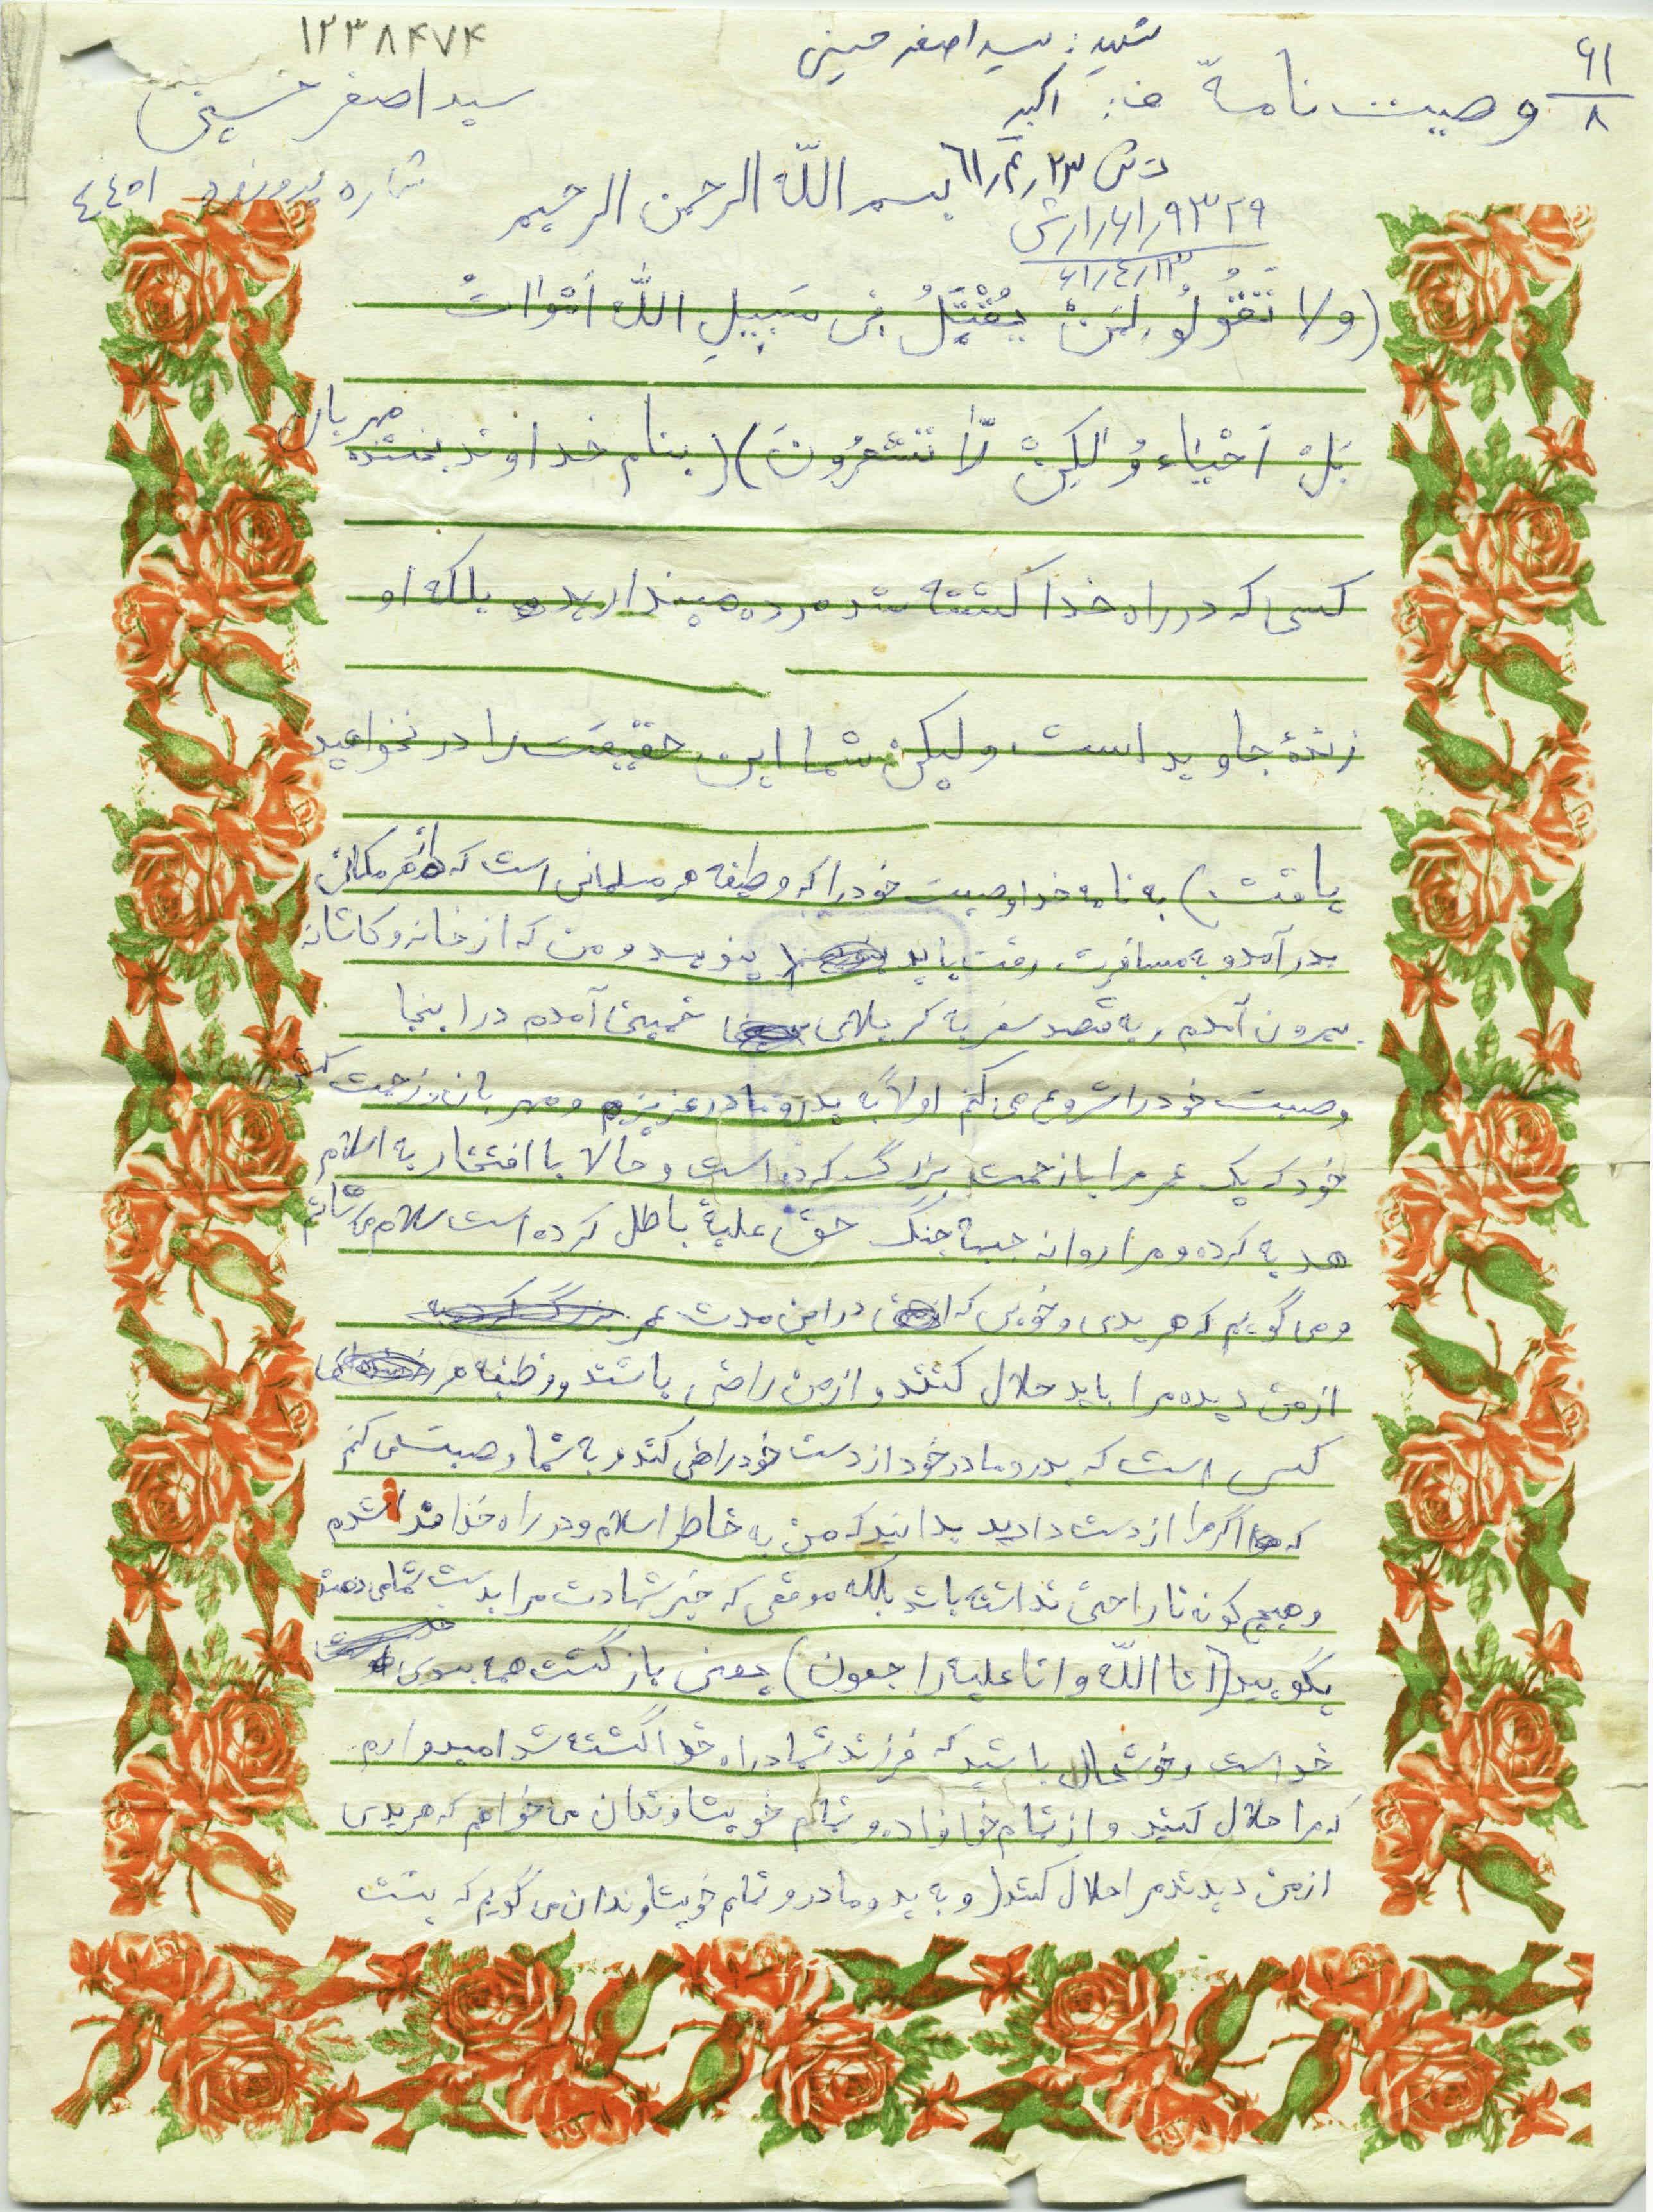 ۱۲۳۸۴۷۴
شهید: سید اصغر حسینی
۶۱/۸
وصیت نامهٔ ف: اکبر
سید اصغر حسینی
ش ۲۳ر۴ر۶۱
شماره پرونده ٤٤٥١
بسم اللّه الرحمن الرحیم
۹۳۲۹ر۶۱ر۱ر ش
۶۱ر٤ر۱۳
(ولا تَقُولُو لِمَنْ یُقْتَلُ فی سَبیلِ اللّٰه اَمْوٰاتْ
بَلْ اَحْیٰاء وَلٰکِنْ لّاٰ تَشْعُرُونَ)(بنام خداوند بخشنده مهربان
کسی که در راه خدا کشته شد مرده مپندارید بلکه او
زندهٔ جاوید است ولیکن شما این حقیقت را در نخواهید
یافت.) به نام خدا وصیت خود را که وظیفه هر مسلمانی است که از هر مکانی
بدر آمد و به مسافرت رفت باید بنویسد و من که از خانه و کاشانه
بیرون آمدم و به قصد سفر به کربلای خمینی آمدم در اینجا
وصیت خود را شروع می کنم اولاً به پدر و مادر عزیزم و مهربان زحمت کش
خود که یک عمر مرا با زحمت بزرگ کرده است و حالا با افتخار به اسلام
هدیه کرده و مرا روانه جبهٔ جنگ حق علیهٔ باطل کرده است سلام می رسانم
و می گویم که هر بدی و خوبی که در این مدت عمر
از من دیده مرا باید حلال کنند و از من راضی باشند و وظیفه هر
کس است که پدر و مادر خود از دست خود راضی کند و به شما وصیت می کنم
که اگر مرا از دست دادید بدانید که من به خاطر اسلام و در راه خدا فدا شدم
و هیچ گونه ناراحتی نداشته باشد بلکه موقعی که خبر شهادت مرا بدست شما می دهند
بگویید (انا اللّه و انا علیه راجعون) یعنی بازگشت همه بسوی
خداست و خوشحال باشید که فرزند شما در راه خدا کشته شد امیدوارم
که مرا حلال کنید و از تمام خانواده و تمام خویشاوندان می خواهم که هر بدی
از من دیدند مرا حلال کنند (و به پدر و مادر و تمام خویشاوندان می گویم که پشت